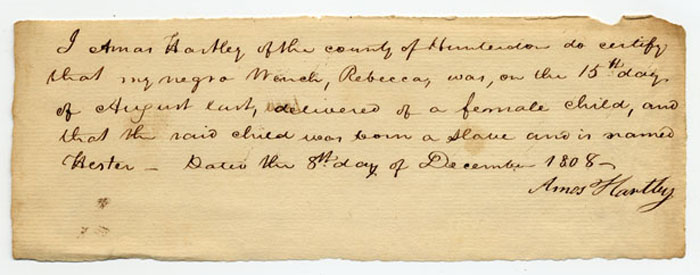 I Amos Hartley of the county of Hunterdon do certify
that my negro Wench, Rebecca, was, on the 15th day
of August last, delivered of a female child, and
that the said child was born a slave and is named
Hester – Dated the 8th day of December 1808 –
Amos Hartley